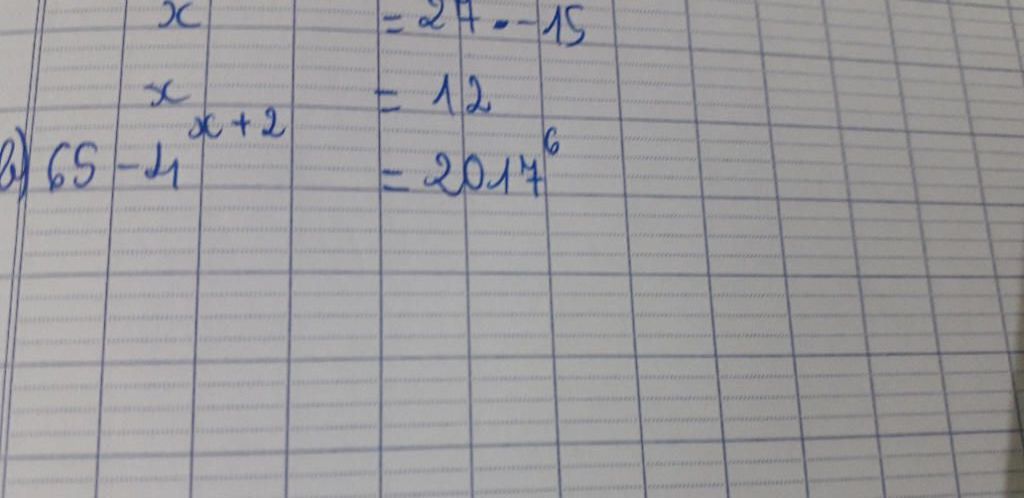 x = 27 - 15
x = 12
b) 65 - 4^{x+2} = 2017^6